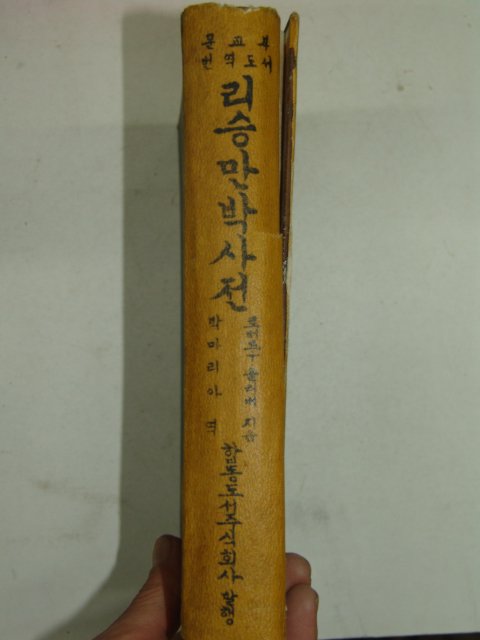 문교부
번역도서
리승만박사전
로버트·올리버 지음
박마리아 역
합동도서주식회사 발행